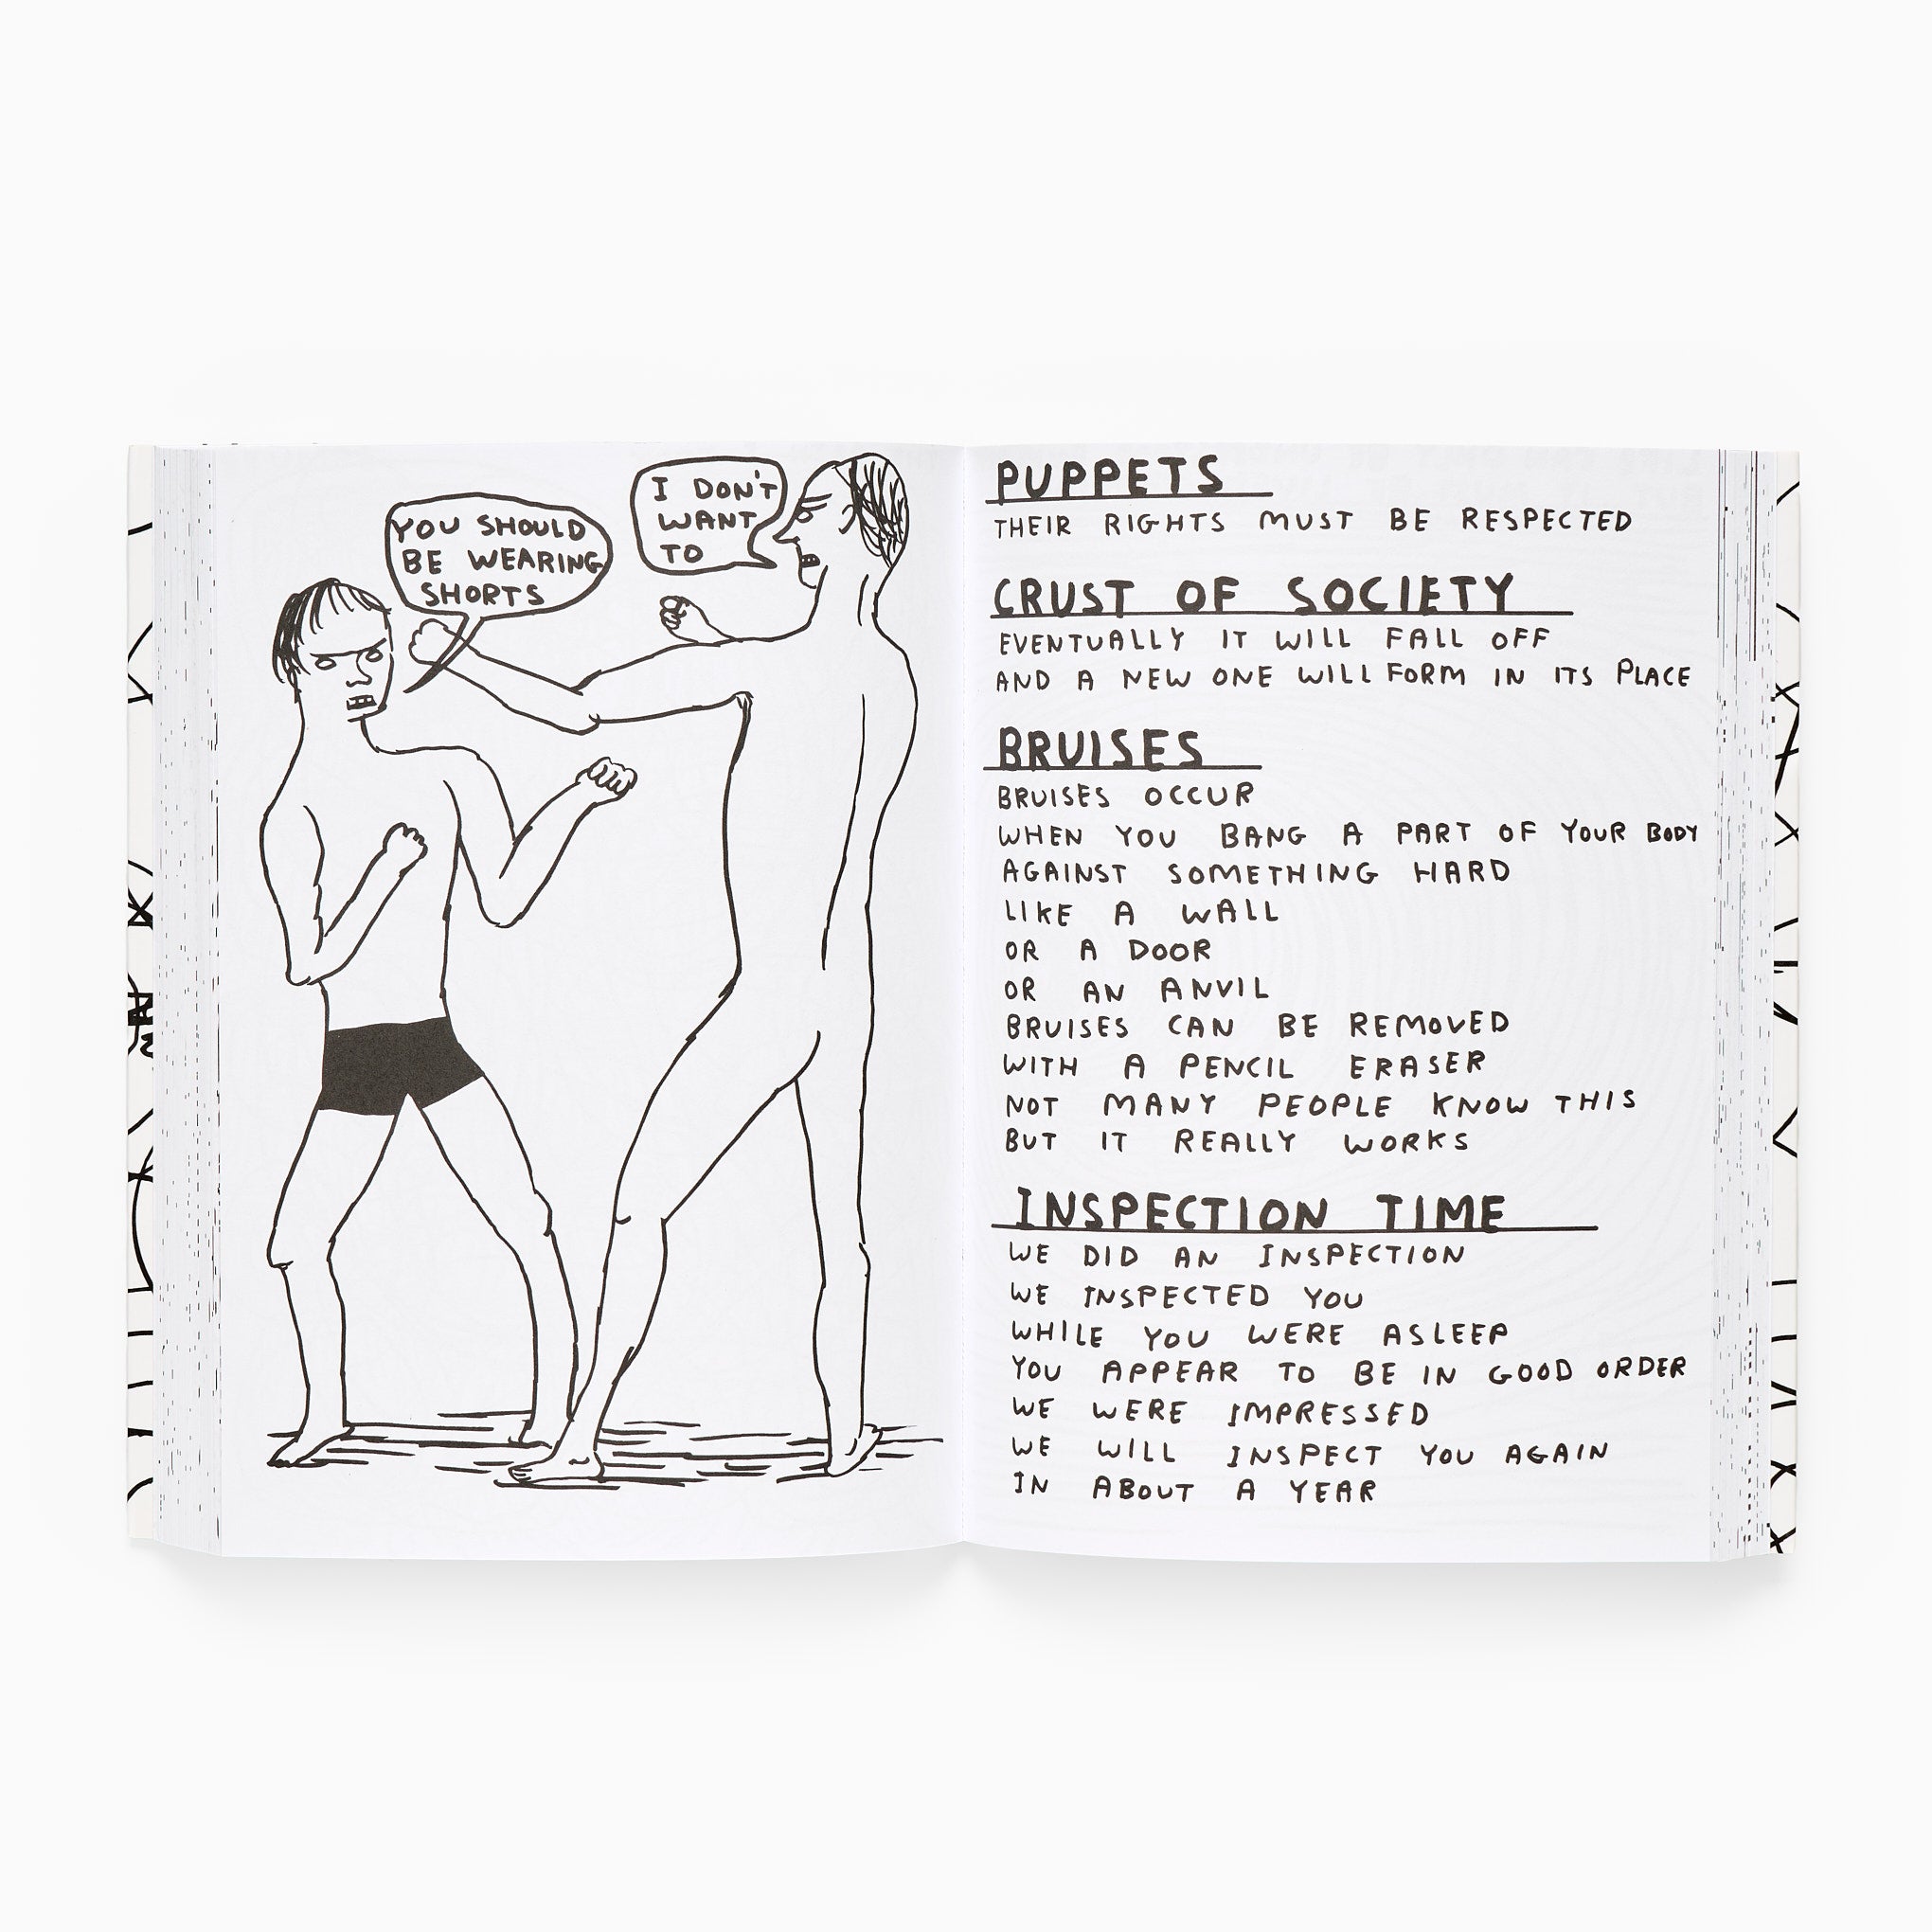 YOU SHOULD
BE WEARING
SHORTS
I DON'T
WANT
TO
PUPPETS
THEIR RIGHTS MUST BE RESPECTED
CRUST OF SOCIETY
EVENTUALLY IT WILL FALL OFF
AND A NEW ONE WILL FORM IN ITS PLACE
BRUISES
BRUISES OCCUR
WHEN YOU BANG A PART OF YOUR BODY
AGAINST SOMETHING HARD
LIKE A WALL
OR A DOOR
OR AN ANVIL
BRUISES CAN BE REMOVED
WITH A PENCIL ERASER
NOT MANY PEOPLE KNOW THIS
BUT IT REALLY WORKS
INSPECTION TIME
WE DID AN INSPECTION
WE INSPECTED YOU
WHILE YOU WERE ASLEEP
YOU APPEAR TO BE IN GOOD ORDER
WE WERE IMPRESSED
WE WILL INSPECT YOU AGAIN
IN ABOUT A YEAR